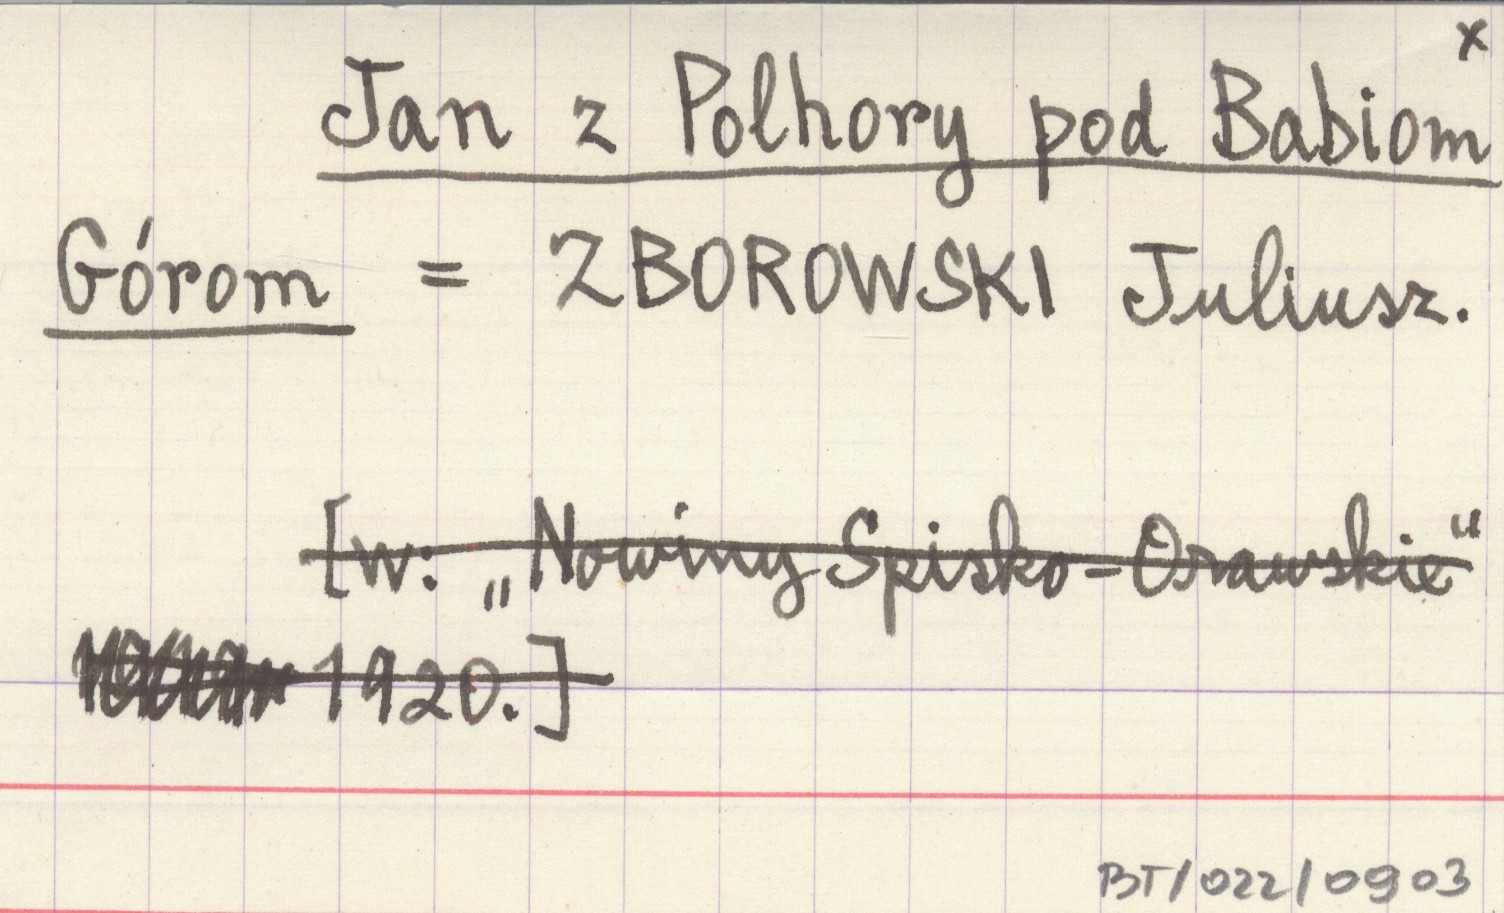 x
Jan z Polhory pod Babiom
Górom = ZBOROWSKI Juliusz.
[w: „Nowiny Spisko-Orawskie"
1920.]
BT/022/0903